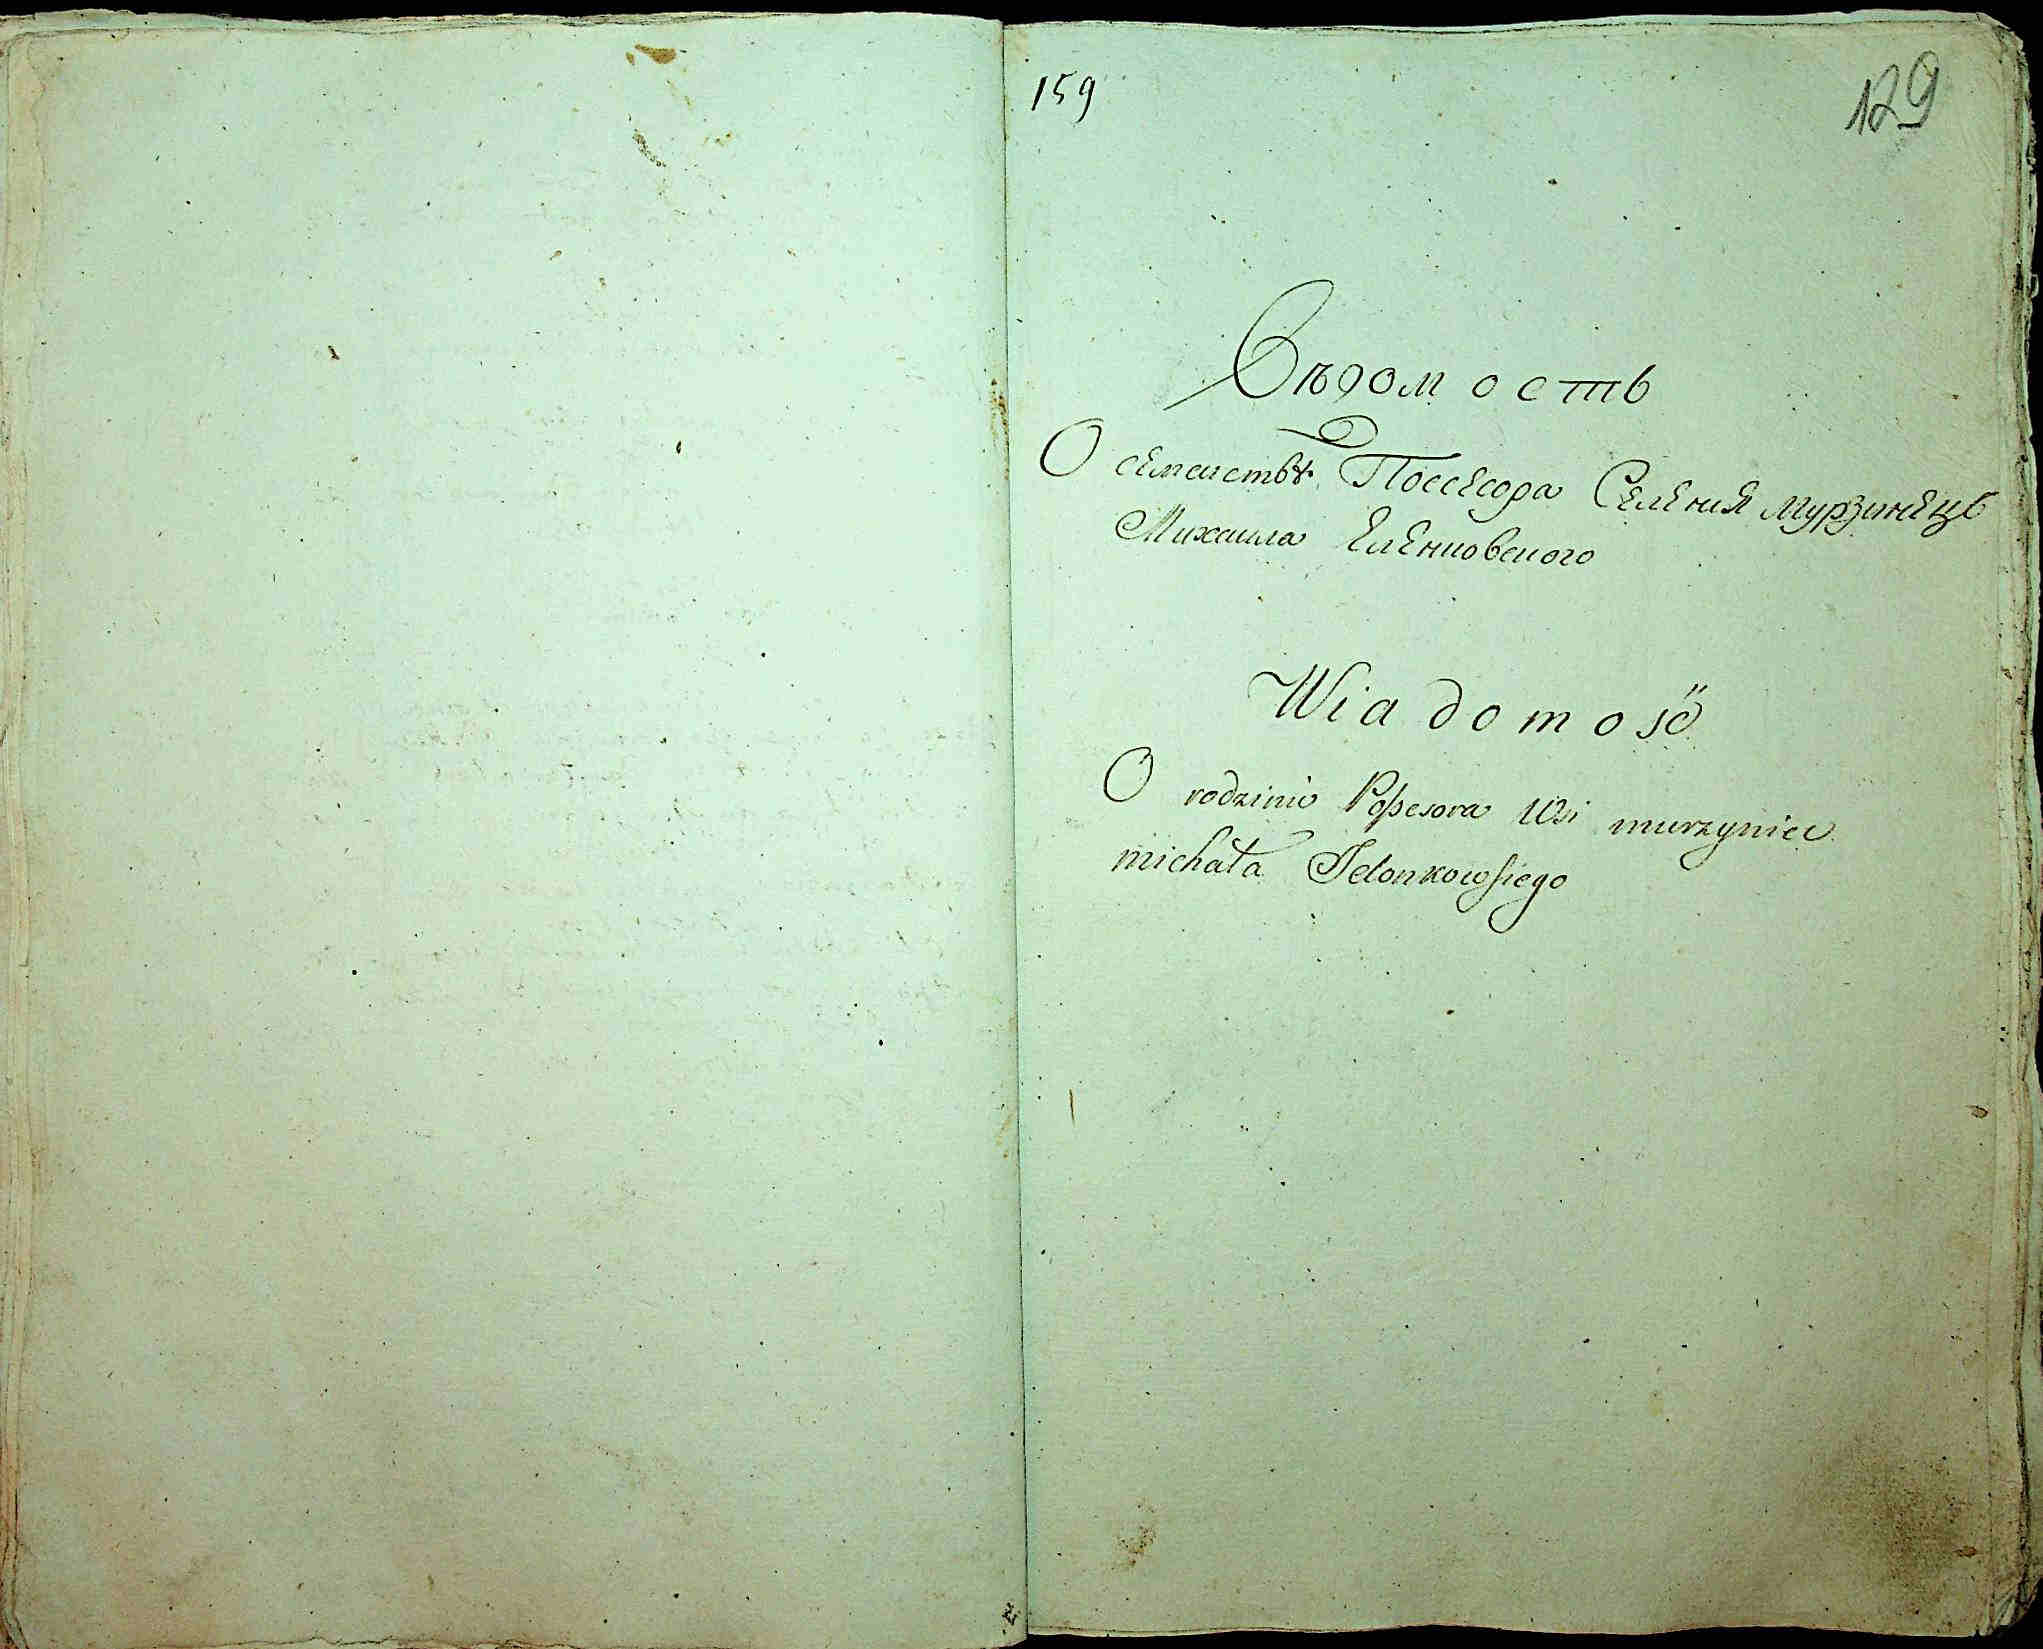 159
129
Вѣдомость
О семеиствѣ Поссесора Селения мурзинецъ
Михаила Еленковского
Wiadomość
O rodzinie Possesora Wsi murzyniec
michała Jelonkowskiego